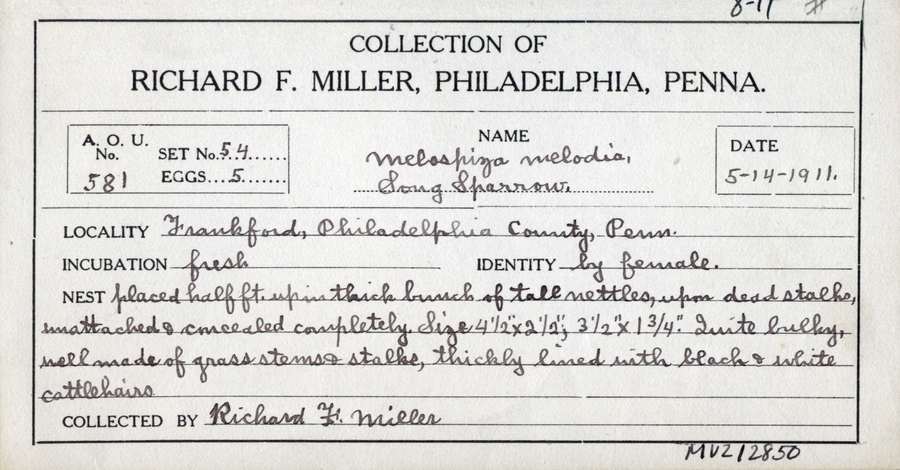 8-11 #
COLLECTION OF
RICHARD F. MILLER, PHILADELPHIA, PENNA.
A. O. U. No. 581
SET No. 54......
EGGS....5......
NAME
Melospiza melodia,
Song Sparrow.
DATE
5-14-1911.
LOCALITY Frankford, Philadelphia County, Penn.
INCUBATION fresh IDENTITY by female.
NEST placed half ft. up in thick bunch of tall nettles, upon dead stalks,
unattached & concealed completely. Size 4 1/2" x 2 1/2"; 3 1/2" x 1 3/4". Quite bulky,
well made of grass stems & stalks, thickly lined with black & white
cattlehairs
COLLECTED BY Richard F. Miller
MVZ 12850